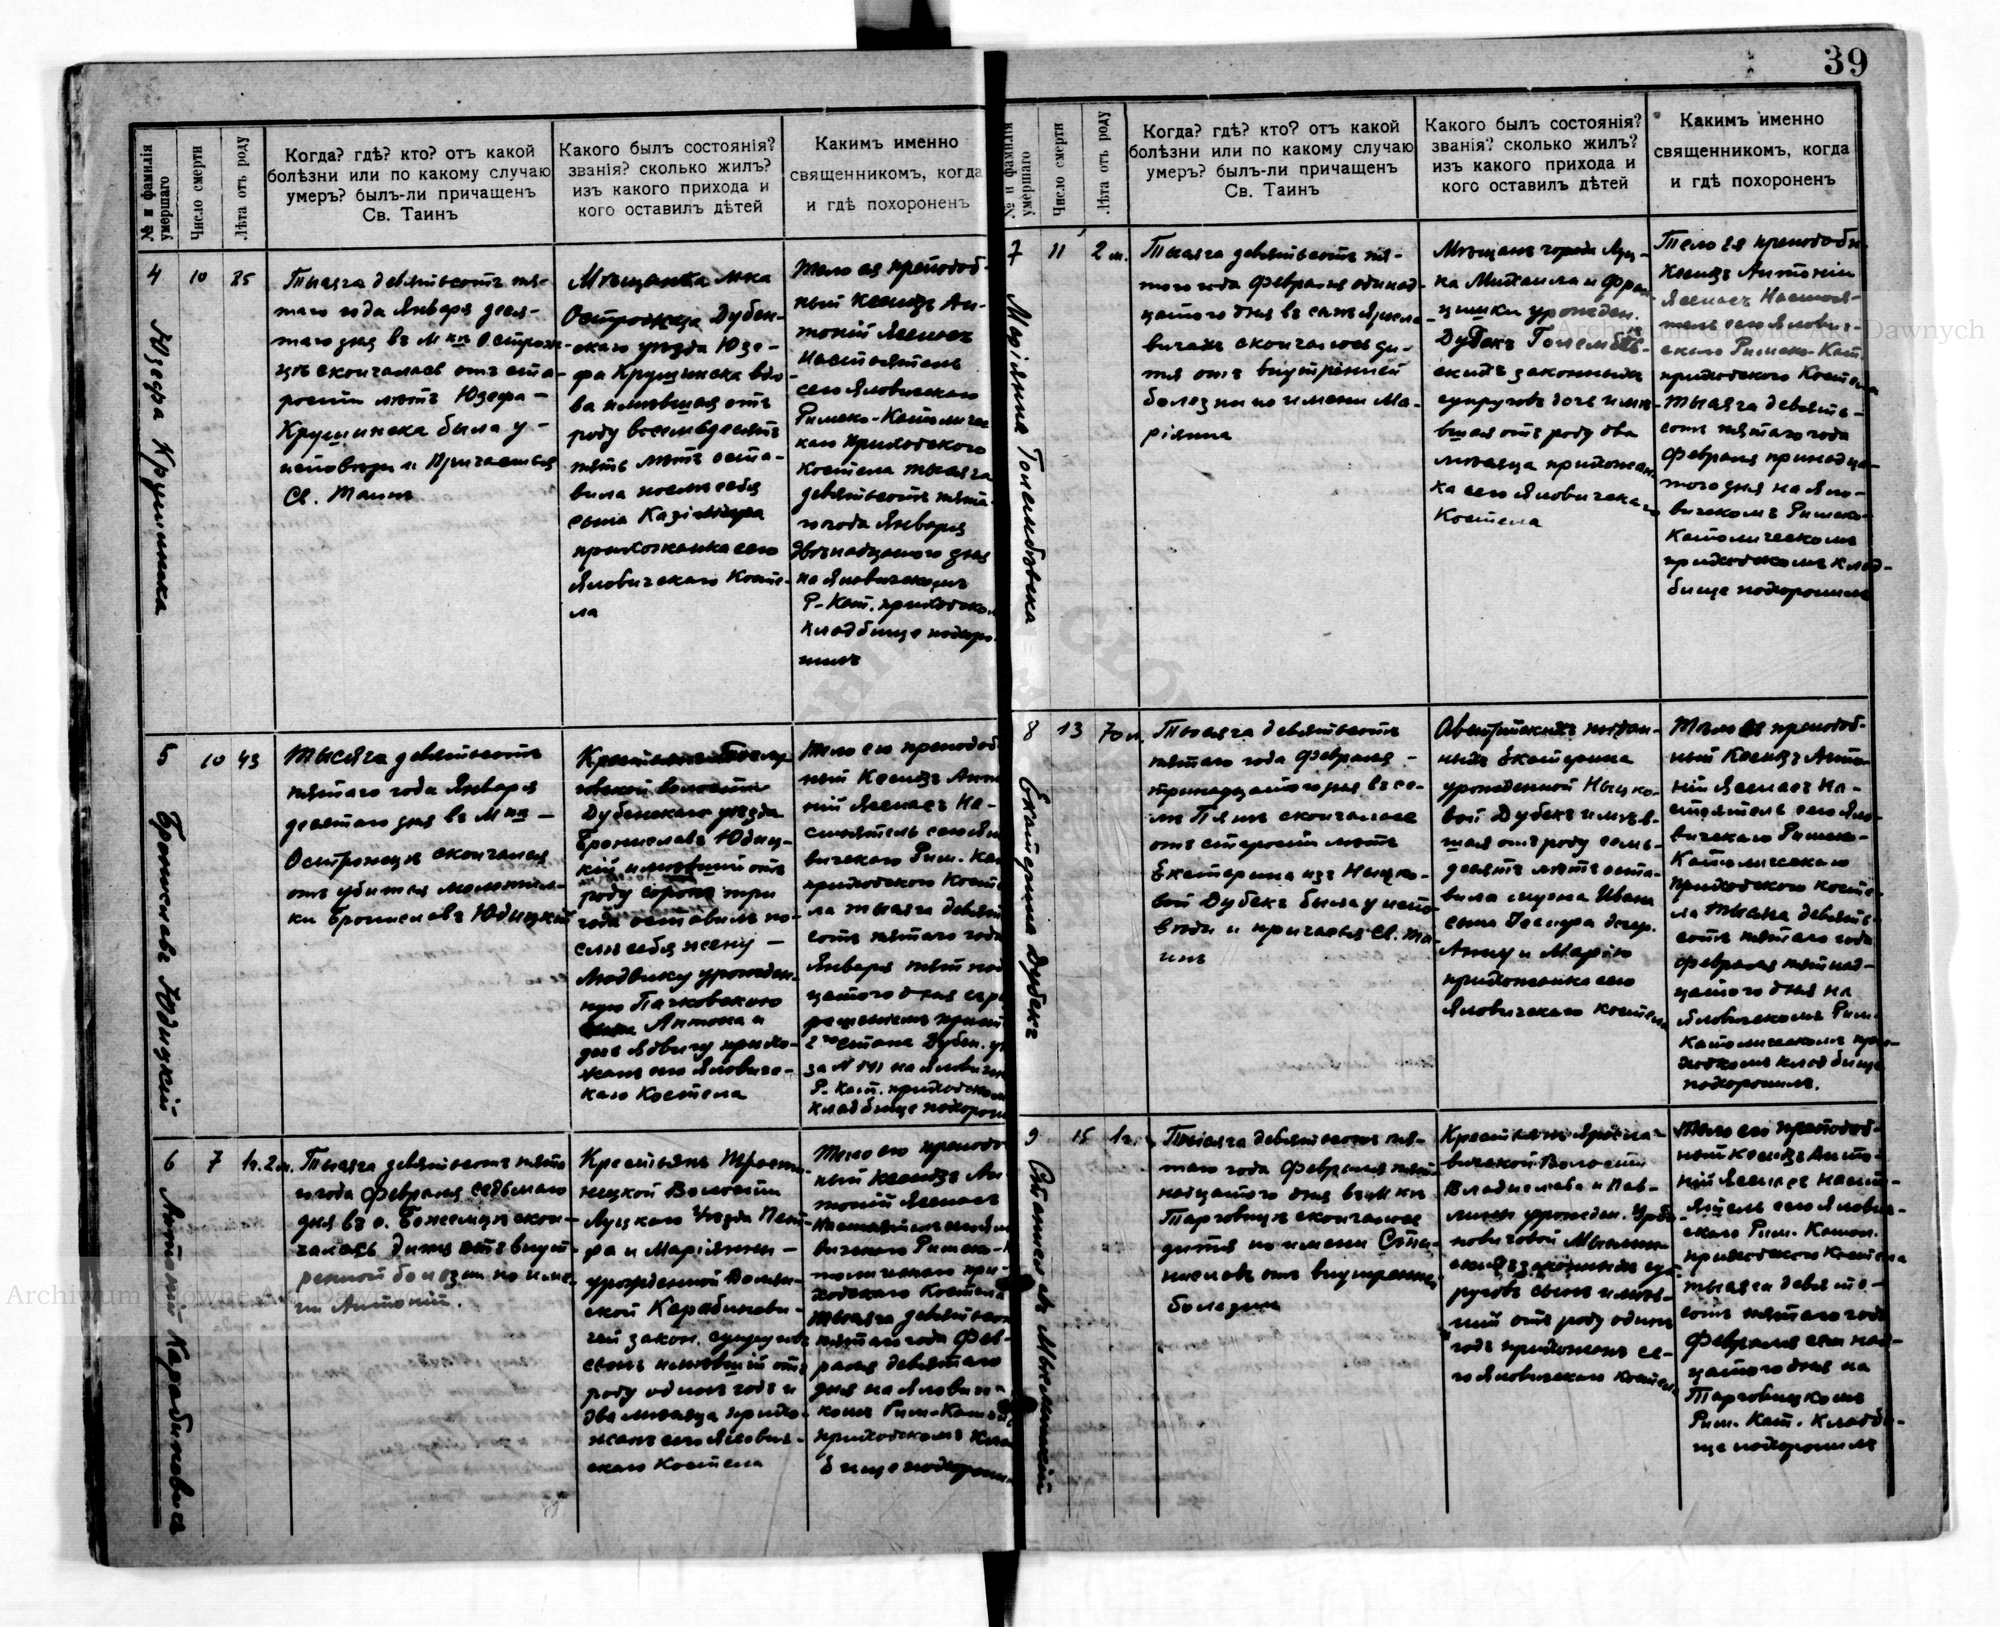 39
№ и фамилія умершаго
Число смерти
Лѣта отъ роду
Когда? гдѣ? кто? отъ какой
болѣзни или по какому случаю
умеръ? былъ-ли причащенъ
Св. Таинъ
Какого былъ состоянія?
званія? сколько жилъ?
изъ какого прихода и
кого оставилъ дѣтей
Каким именно
священникомъ, когда
и гдѣ похороненъ
4
Юзефа Крушинска
10
85
Тысяча девятьсотъ пя-
таго года Января деся-
таго дня въ м
цѣ скончалась отъ ста-
рости лѣтъ Юзефа
Крушинска была у-
исповѣди и Причастья
Св. Таинъ
Мѣщанка м-ка
Острожца Дубен-
скаго уѣзда Юзе-
фа Крушинска вдо-
ва имѣвшая отъ
роду восемьдесятъ
пять лѣтъ оста-
вила послѣ себя
сына Казіміра
прихожанка сего
Яловичскаго Косте-
ла
Тѣло ея преподоб-
ный Ксендзъ Ан-
тоній
Настоятель
сего Яловичскаго
Римско-Католичес
каго Приходскаго
Костела тысяча
девятьсотъ пята-
го года Января
двѣнадцатого дня
на Яловичскомъ
Р-Кат. приходско
кладбище похоро-
нилъ
5
Брониславъ Юдицкій
10
43
Тысяча девятьсотъ
пятаго года Января
десятаго дня въ м
Острожецѣ скончался
отъ убитія молотил-
ки Брониславъ Юдицкій
Дубенскаго уѣзда
Брониславъ Юдиц-
кій имѣвшій отъ
роду сорокъ три
года оставилъ по-
слѣ себя жену
Людвику урожден-
ную Пачковскою
Антона и
дочь Ядвигу прихо-
жанъ сего Яловичс-
каго Костела
Тѣло его преподоб
ный Ксендзъ Анто
ній На-
стоятель сего Ял
вичскаго Рим. Ка
приходскаго Косте
ла тысяча девять
сотъ пятаго года
Января пятнад
цатого дня съ р
2 стана Дубен. у
за № 141 на Яловичс
Р. Кат. приходском
кладбище похорон
6
Антоній Карабиновичъ
7
1г. 2м.
Тысяча девятьсотъ пята
го года Февраля седьмаго
дня въ с. Божемцѣ скон-
чалось дитя отъ внут-
ренной болезни по име-
ни Антоній.
Крестьянъ
нецкой Волости
Луцкаго Уѣзда Пет-
ра и Маріянны
урожденной Волын-
ской Карабинови-
чей закон. супруговъ
сынъ имѣвшій отъ
роду одинъ годъ и
два мѣсяца прихо-
жанъ сего Ялович-
скаго Костела
Тѣло его преподо
ный Ксендзъ Ан
тоній
Настоятель сего Ял
вичскаго Римско-
толичскаго при-
ходскаго Костела
тысяча девятьсот
пятаго года Фев-
раля девятаго
дня на Яловичс-
комъ Рим-Катол
приходскомъ Кла
бище похорони
№ и фамилія умершаго
Число смерти
Лѣта отъ роду
Когда? гдѣ? кто? отъ какой
болѣзни или по какому случаю
умеръ? былъ-ли причащенъ
Св. Таинъ
Какого былъ состоянія?
званія? сколько жилъ?
изъ какого прихода и
кого оставилъ дѣтей
Какимъ именно
священникомъ, когда
и гдѣ похороненъ
7
Маріянна Голембовска
11
2 м.
Тысяча девятьсотъ пя-
того года Февраля одинад-
цатого дня въ селѣ
вичахъ скончалось ди-
тя отъ внутренней
болезни по имени Ма-
ріянна
Мѣщанъ города Луц-
ка Михаила и Фран
цишки урожден.
Дубекъ Голембов-
скихъ законныхъ
супруговъ дочь имѣ-
вшая отъ роду два
мѣсяца прихожан-
ка сего Яловичскаго
Костела
Тело ея преподобн
Ксендзъ Антоній
Настоя-
тель сего Ялович-
скаго Римско-Кат.
приходского Костела
тысяча девять-
сотъ пятаго года
Февраля тринадца-
того дня на Яло-
вичскомъ Римско-
Католическомъ
приходскомъ клад-
бище похоронилъ
8
Екатерина Дубекъ
13
70 л.
Тысяча девятьсотъ
пятаго года Февраля
тринадцатого дня въ се-
лѣ скончалась
отъ старости лѣтъ
Екатерина изъ Ницко-
вой Дубекъ была у испо-
вѣди и причастья Св. Та-
инъ
Австрійскихъ поддан-
ныхъ Екатерина
урожденной Ницко-
вой Дубекъ имѣв-
шая отъ роду семь-
десятъ лѣтъ оста-
вила мужа Ивана
сына дочер.
Анну и Марію
прихожанка сего
Яловичскаго Костела
Тѣло ея преподоб-
ный Ксендзъ Анто-
ній На-
стоятель сего Яло-
вичскаго Римско-
Католическаго
Приходского косте-
ла тысяча девять-
сотъ пятаго года
Февраля пятнад-
цатого дня на
Яловичскомъ Рим.
Католическомъ при-
ходскомъ кладбище
похоронилъ.
9
Станиславъ
15
1г.
Тысяча девятьсотъ пя-
таго года Февраля пят
надцатого дня въ м-кѣ
Торговицѣ скончалось
дитя по имени Стан-
иславъ отъ внутренней
болезни
Крестьянъ
вичской Волости
Владислава и Пав-
лины урожден. Урба
новичовой
законныхъ су-
пруговъ сынъ имѣв-
шій отъ роду одинъ
годъ прихожанъ се-
го Яловичскаго Костела
Тѣло его преподоб-
ный Ксендзъ Анто-
ній Насто-
ятель сего Ялович-
скаго Рим. Катол.
приходского Костела
тысяча девять-
сотъ пятаго года
Февраля семнад-
цатого дня на
Торговицкомъ
Рим. Кат. Кладби-
ще похоронилъ
Archiwum Główne Akt Dawnych
Archiwum Główne Akt Dawnych